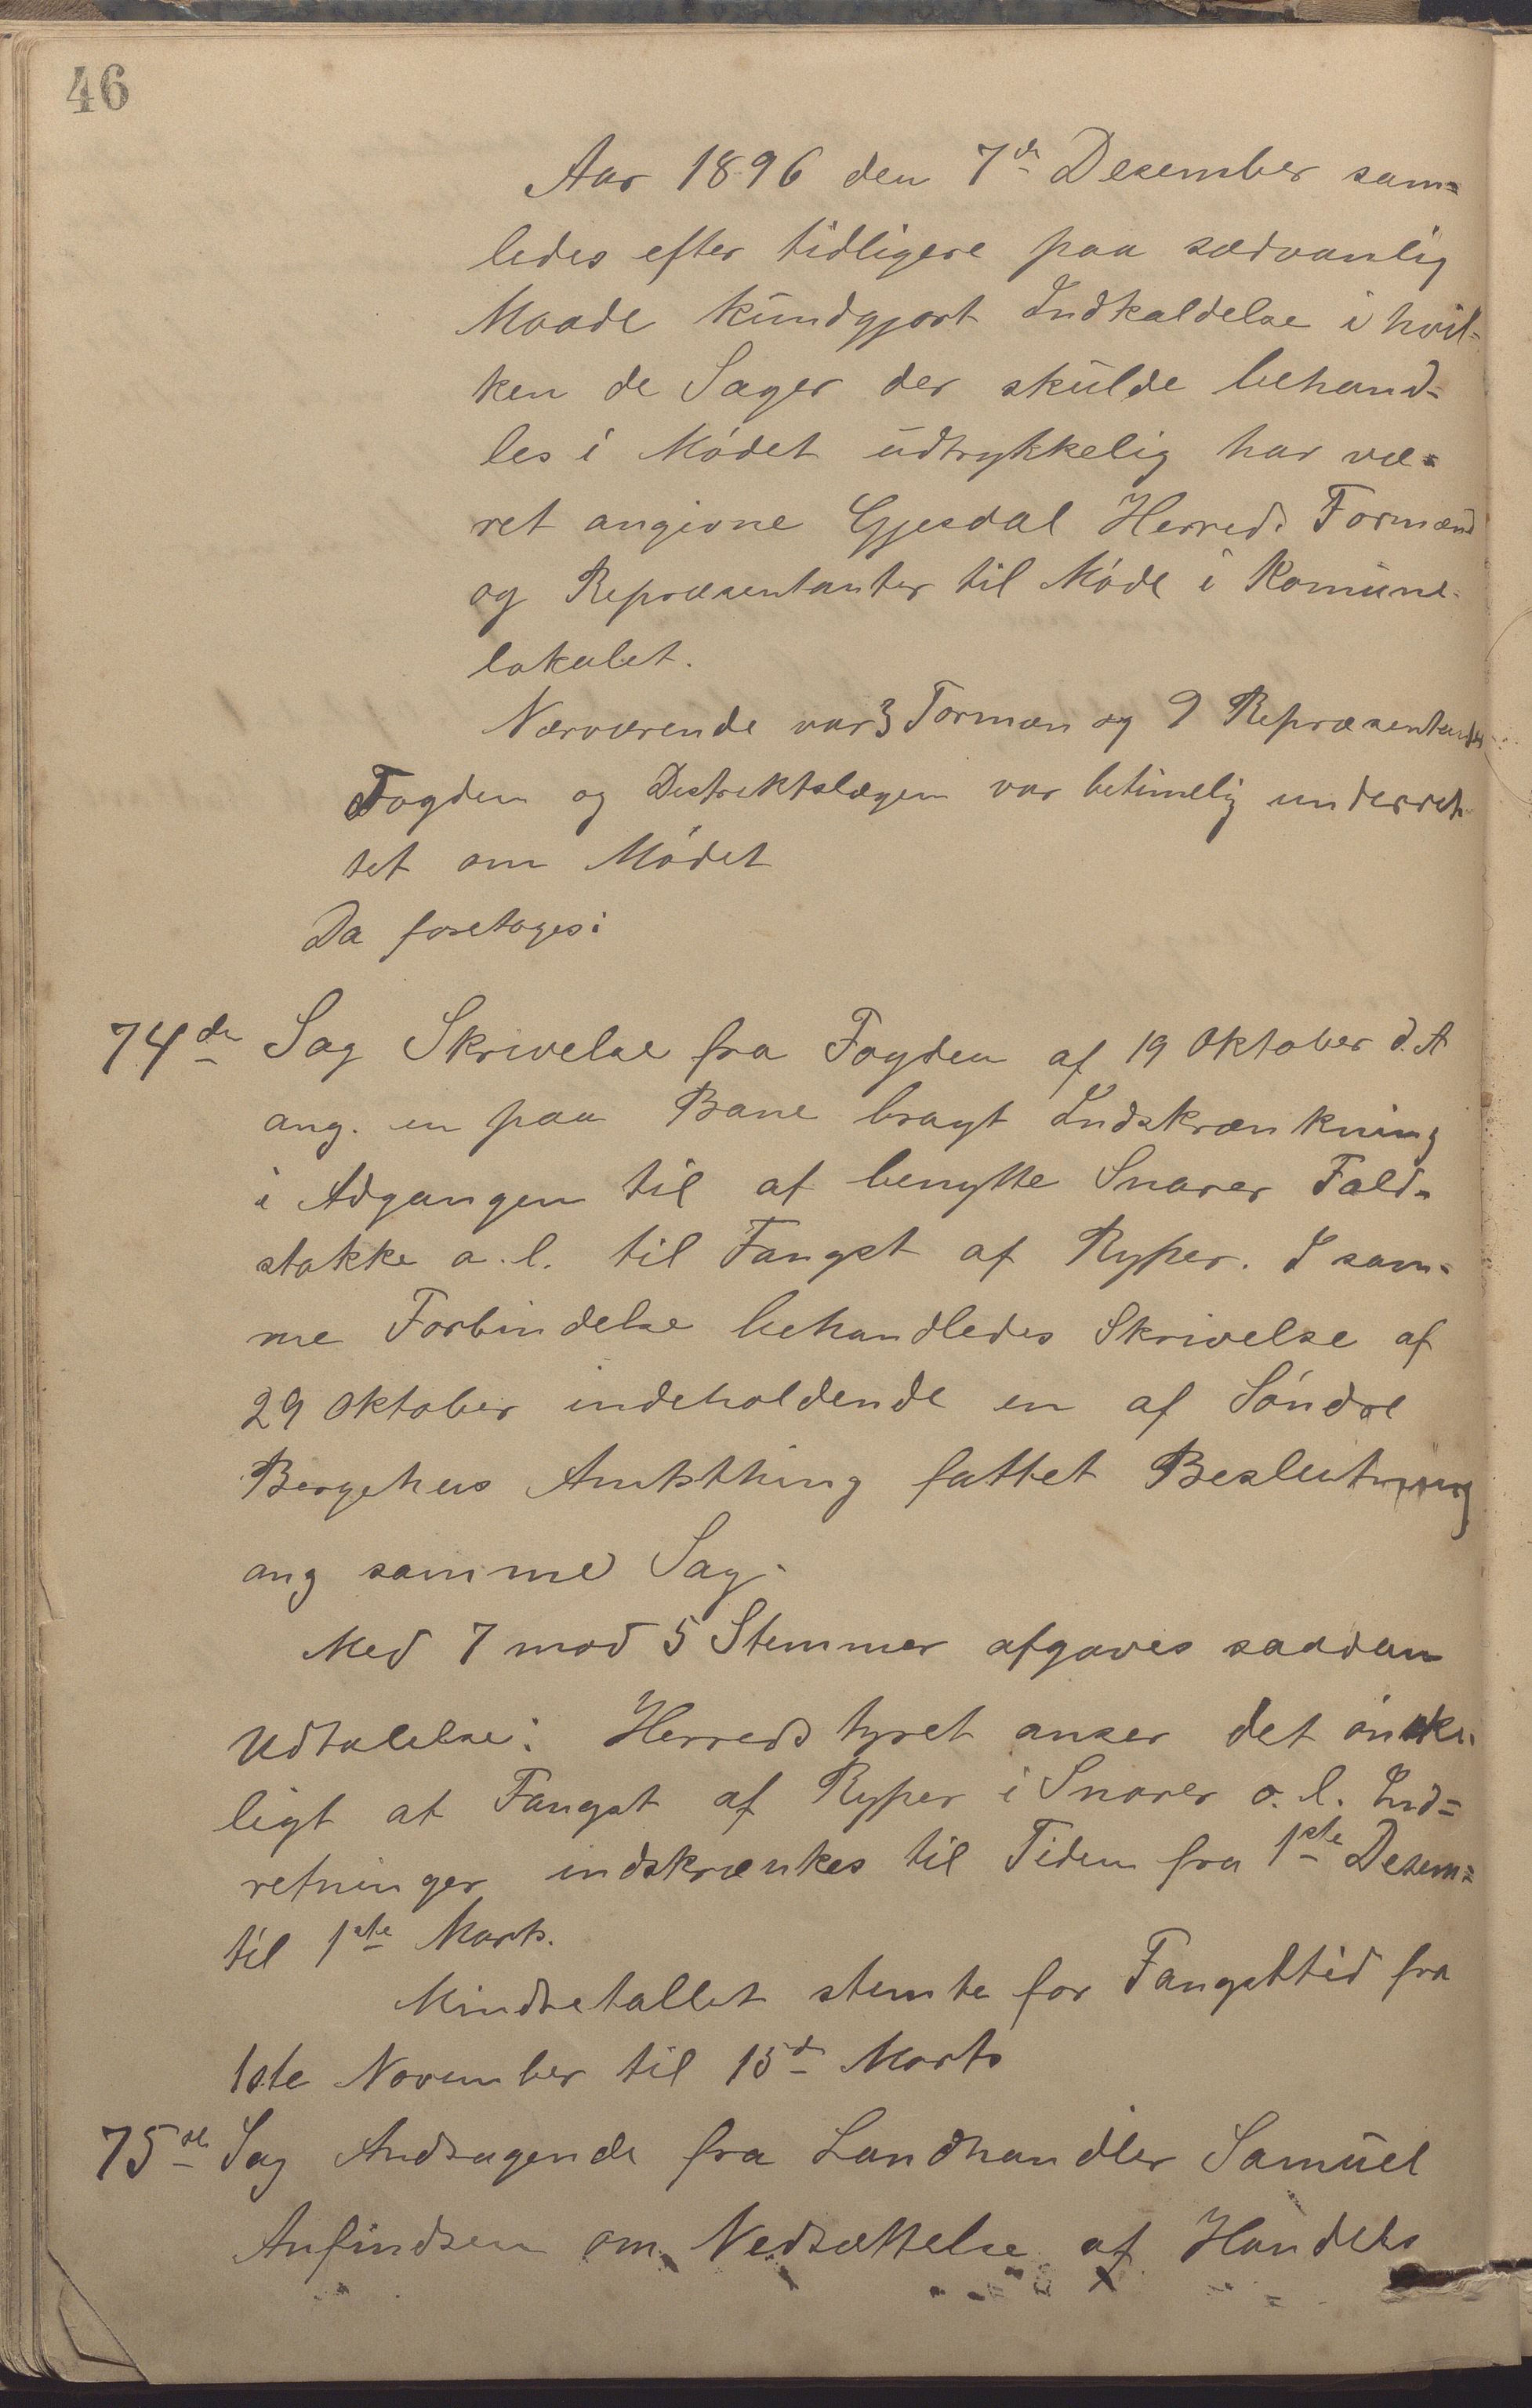 46
Aar 1896 den 7de Desember sam=
ledes efter tidligere paa sædvanlig
Maade kundgjort Indkaldelse i hvil=
ken de Sager der skulde behand=
les i Mødet udtrykkelig har væ=
ret angivne Gjesdal Herreds Formænd
og Repræsentanter til Møde i Komune-
lokalet.
Nærværende var 3 Formæn og 9 Repræsentanter
Fogden og Distriktslægen var betimelig underret-
tet om Mødet
Da foretoges:
74de Sag Skrivelse fra Fogden af 19 Oktober d. A
ang. en paa Bane bragt Indskrænkning
i Adgangen til at benytte Snarer Fald-
stokke o. l. til Fangst af Ryper. I sam-
me Forbindelse behandledes Skrivelse af
29 Oktober indeholdende en af Søndre
Bergehus Amtsthing fattet Beslutning
ang samme Sag.
Med 7 mod 5 Stemmer afgaves saadan
Udtalelse: Herredstyret anser det ønske-
ligt at Fangst af Ryper i Snarer o. l. Ind=
retninger indskrænkes til Tiden fra 1ste Desem=
til 1ste Marts.
Mindretallet stemte for Fangsttid fra
1ste November til 15de Marts
75de Sag Andragende fra Landhandler Samuel
Anfindsen om Nedsættelse af Handels